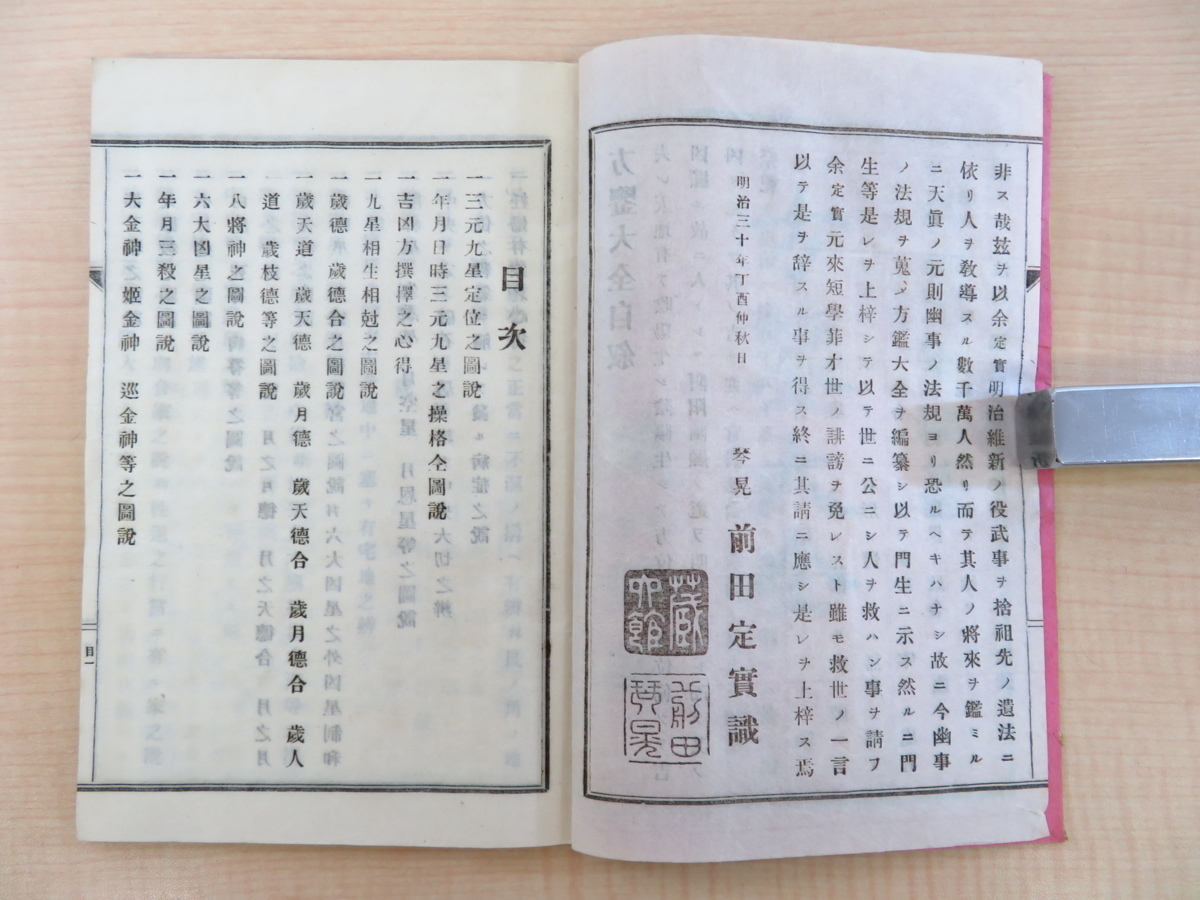 非ス哉玆ヲ以余定實明治維新ノ役武事ヲ捨祖先ノ遺法ニ
依リ人ヲ敎導スル數千萬人然リ而テ其人ノ將來ヲ鑑ミル
ニ天眞ノ元則幽事ノ法規ヨリ恐ルベキハナシ故ニ今幽事
ノ法規ヲ蒐メ方鑑大全ヲ編纂シ以テ門生ニ示ス然ルニ門
生等是レヲ上梓シテ以テ世ニ公ニシ人ヲ救ハン事ヲ請フ
余定實元來短學菲才世ノ誹謗ヲ免レスト雖モ救世ノ一言
以テ是ヲ辞スル事ヲ得ス終ニ其請ニ應シ是レヲ上梓ス焉
明治三十年丁酉仲秋日
琴晃 前田定實識
前田
琴晃
目次
一三元九星定位之圖說
一年月日時三元九星之操格全圖說
一吉凶方撰擇之心得
一九星相生相尅之圖說
一歲德 歲德合之圖說
一歲天道 歲天德 歲月德 歲天德合 歲月德合 歲人
道 歲枝德等之圖說
一八將神之圖說
一六大凶星之圖說
一年月三殺之圖說
一大金神 姬金神 巡金神等之圖說
目一